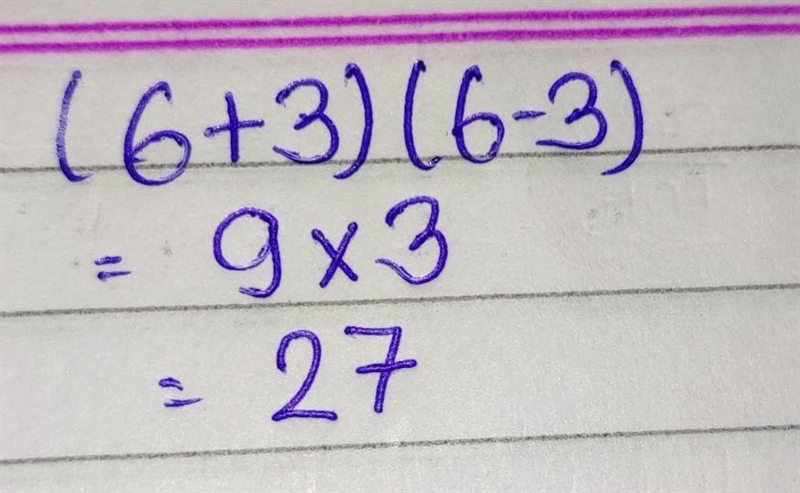 (6+3)(6-3)
= 9×3
= 27